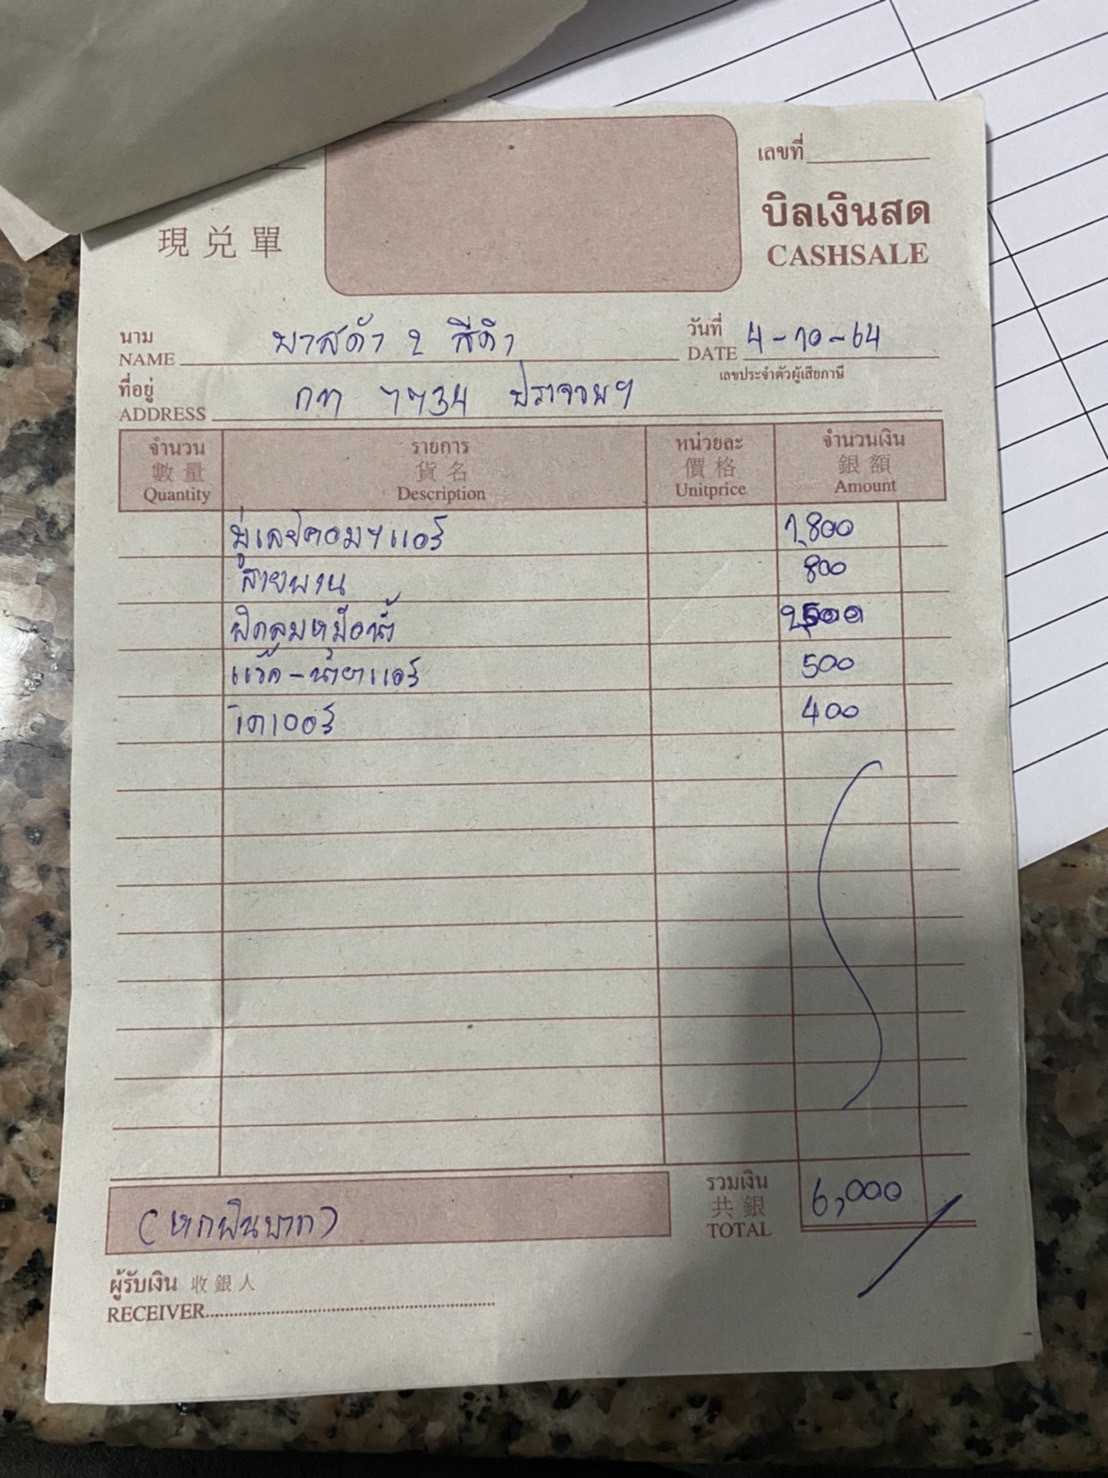 เลขที่
現兑單
บิลเงินสด
CASHSALE
นาม
NAME มาสด้า 2 สีดำ
วันที่
DATE 4-10-64
เลขประจำตัวผู้เสียภาษี
ที่อยู่
ADDRESS กท 7734 ปราจวบฯ
จำนวน รายการ หน่วยละ จำนวนเงิน
數量 貨名 價格 銀額
Quantity Description Unitprice Amount
มู่เลย์คอมฯแอร์ 1,800
สายพาน 800
พัดลมหม้อน้ำ 2,500
แว๊ค-น้ำยาแอร์ 500
ไดเออร์ 400
รวมเงิน
共銀
TOTAL 6,000
(หกพันบาท)
ผู้รับเงิน 收銀人
RECEIVER